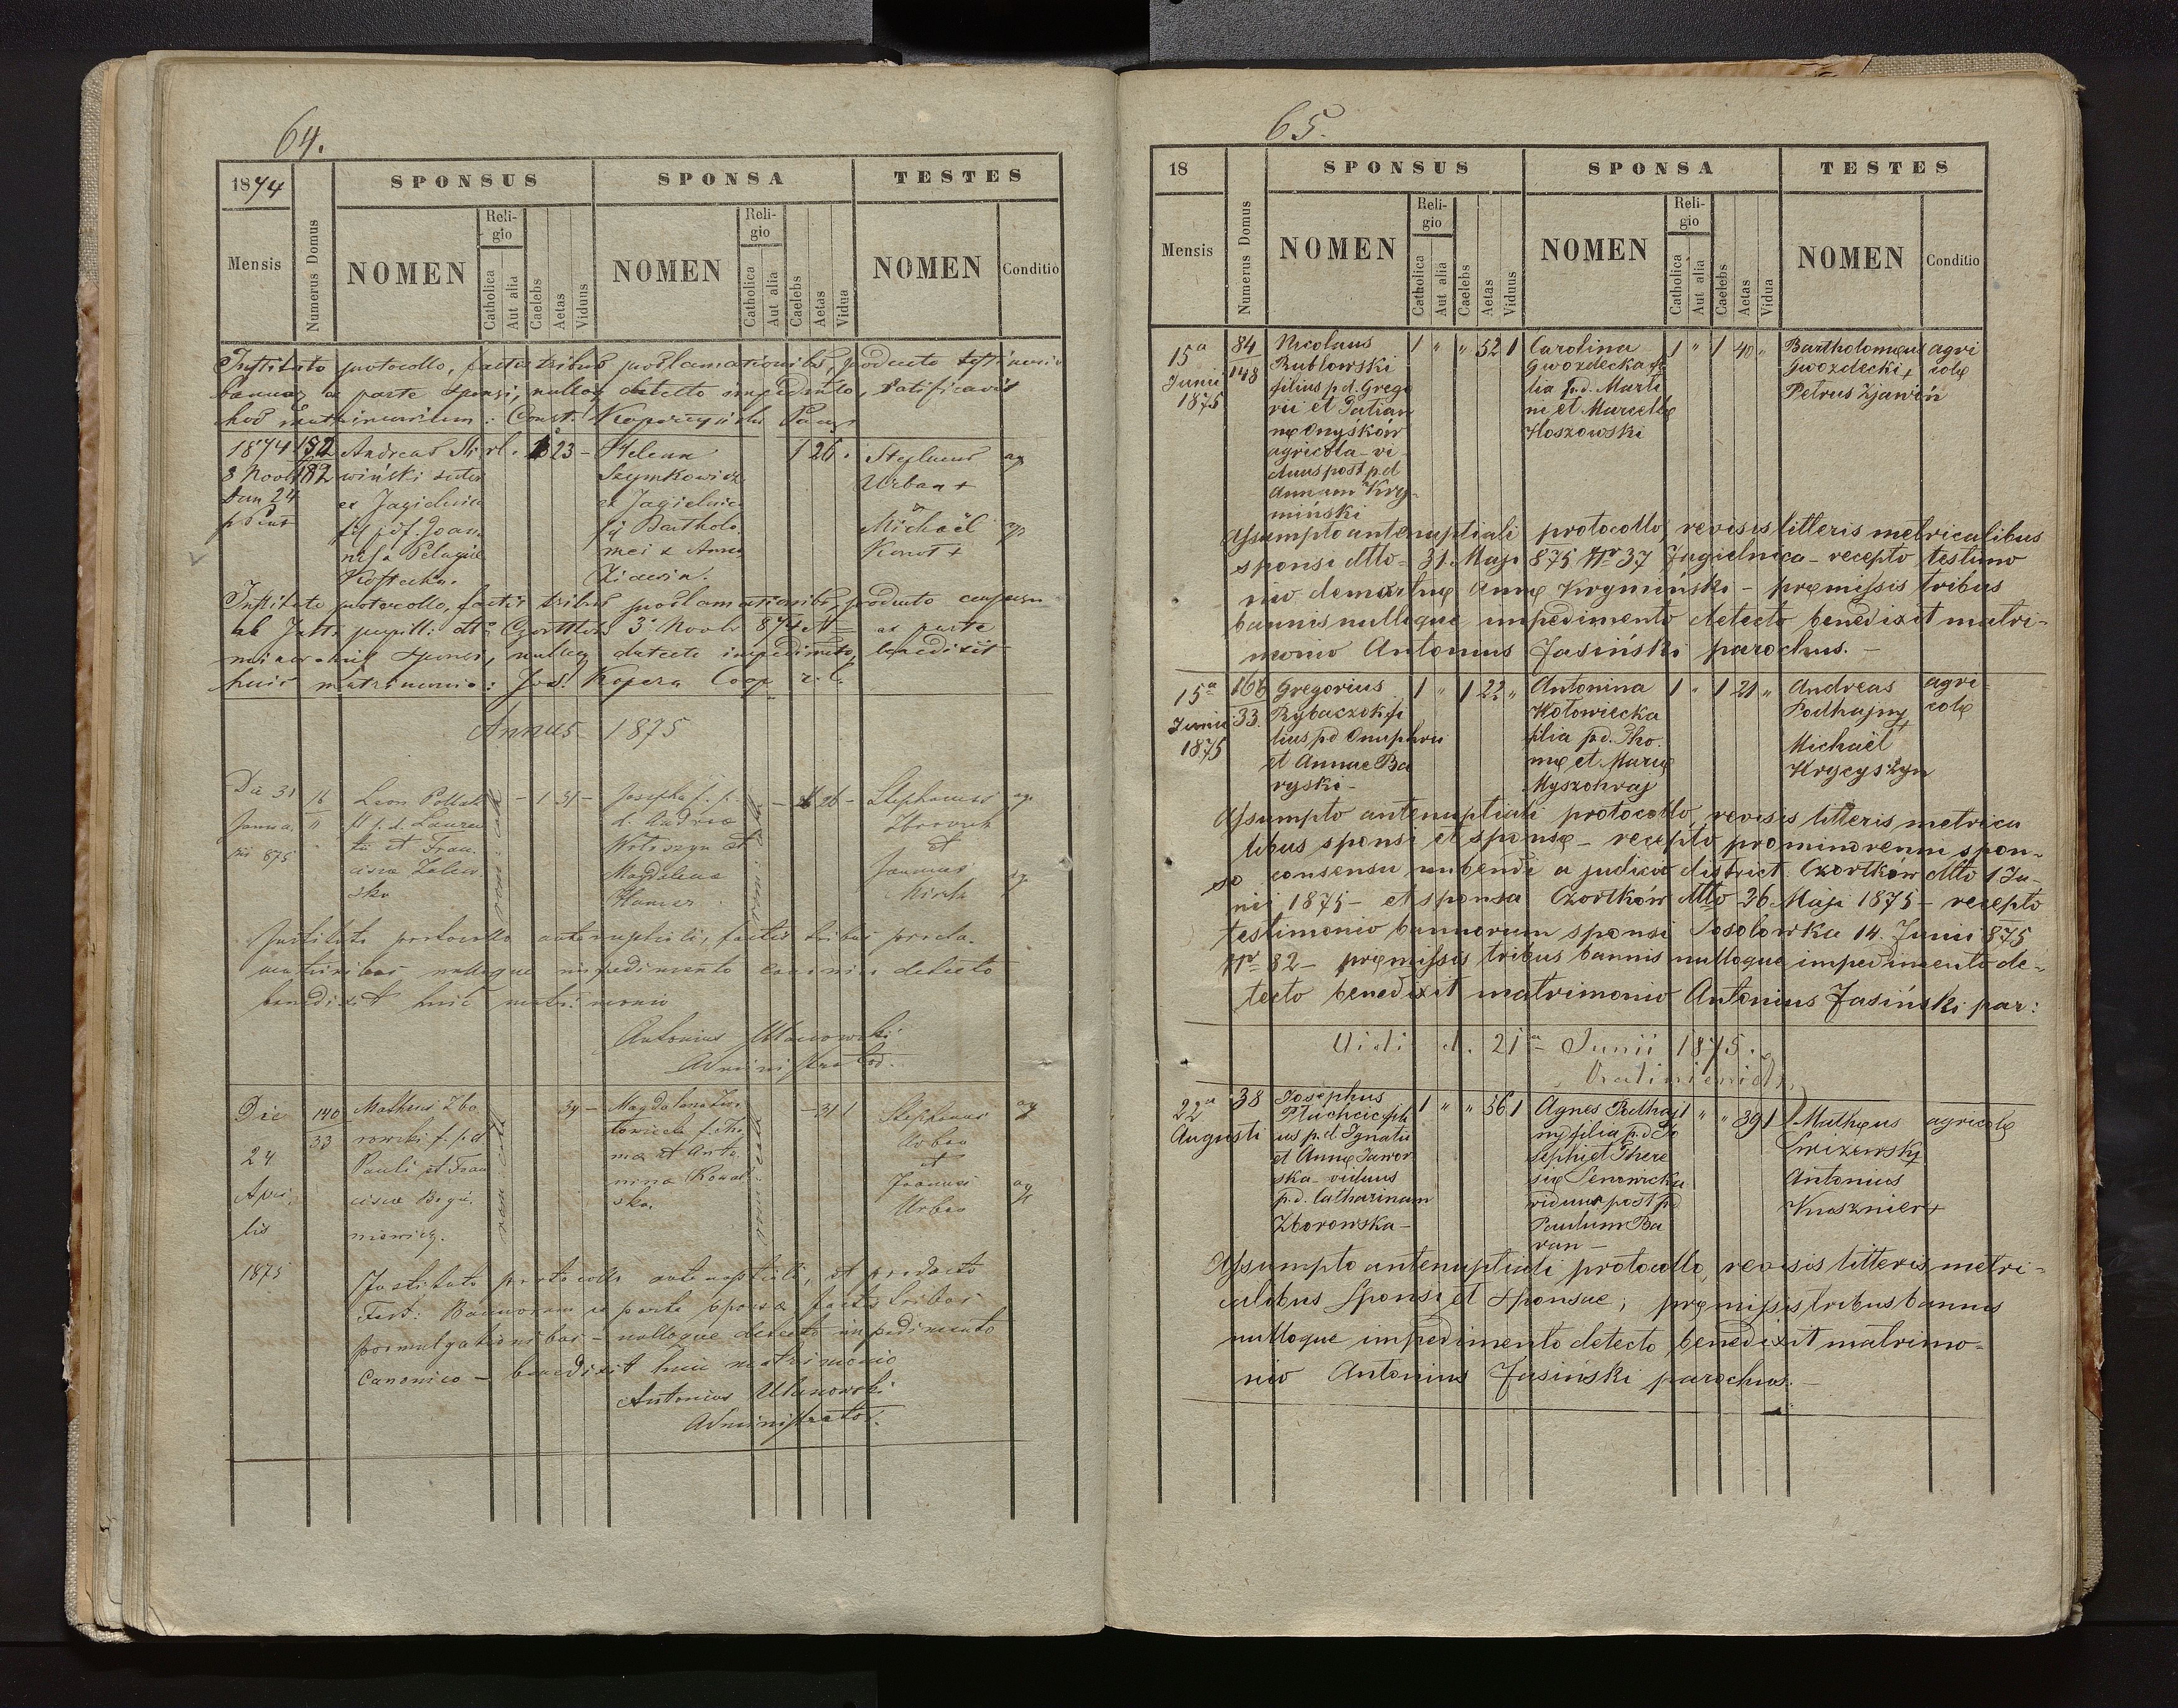 64.
1874
SPONSUS
SPONSA
TESTES
Mensis
Numerus Domus
NOMEN
Religio
Catholica
Aut alia
Caelebs
Aetas
Viduus
NOMEN
Religio
Catholica
Aut alia
Caelebs
Aetas
Vidua
NOMEN
Conditio
protocollo, factis tribus proclamationibus, producto testimonio
bannorum a parte sponsi, detecto impedimento, ratificavit
hoc matrimonium:
1874
8 Novb
182
Andreas
wiński
ex Jagielnica
Pelagiae
23
Helena
Szymkowicz
ex Jagielnica
fil Bartholo
mei & Anna
26
Stephanus
Urban +
Michaël
protocollo, factis tribus proclamationibus, producto
ab 3 Novb 874 ex parte
sponsi, detecto impedimento, benedixit
huic matrimonio: Kopera Coop
Annus 1875
Die 31
Janua
rii 875
16
11
Leon Pollak
fil p. d. Lauren
tii et Fran
cisca Zalew
ska
1 31
Josepha f. p.
d. Andreae
Wołoszyn et
Magdalena
26
Stephanus
et
Joannes
Instituto protocollo antenuptiali, factis tribus procla
mationibus nulloque impedimento canonico detecto
benedixit huic matrimonio
Antonius Ulanowski
Administrator.
Die
24
Apri
lis
1875
140
33
Matheus Zbo
rowski f. p. d
Pauli et Fran
cisca
niewicz.
34
Magdalena
f. Tho
ma et Anto
nina Kowal
ska.
31 1
Stephanus
Urban
et
Joannes
Urban
ag
Instituto protocollo antenuptiali, et producto
Test: Bannorum ex parte sponsa factis tribus
promulgationibus – nulloque detecto impedimento
Canonico – benedixit huic matrimonio
Antonius Ulanowski
Administrator.
65.
18
SPONSUS
SPONSA
TESTES
Mensis
Numerus Domus
NOMEN
Religio
Catholica
Aut alia
Caelebs
Aetas
Viduus
NOMEN
Religio
Catholica
Aut alia
Caelebs
Aetas
Vidua
NOMEN
Conditio
15a
Junii
1875
84
148
Nicolaus
Rubłowski
filius p.d. Grego
rii et Tatian
næ Onysków
agricola – vi
duus post p.d
Annam Kry
miński
1 " " 52 1
Carolina
Gwozdecka fi
lia p.d. Marti
ni et Marcellæ
Hoszowski
1 " 1 40 "
Bartholomæus
Gwozdecki +
Petrus Zjawin
agri
colæ
Assumpto antenuptiali protocollo, revisis litteris metricalibus
sponsi dtto 31. Maji 875 Nr 37 Jagielnica – recepto testimo
nio demortuæ Annæ Krymiński – præmissis tribus
bannis nulloque impedimento detecto benedixit matri-
monio Antonius Jasiński parochus. –
15a
Junii
1875
166
33
Gregorius
Rybaczok fi
lius pd Onuphrii
et Annae Ba
ryski –
1 " 1 22 "
Antonina
Kołowiecka
filia p.d. Tho
mæ et Mariæ
Myszokraj
1 " 1 21 "
Andreas
Podhajny +
Michaël
Krycyszyn
agri
colæ
Assumpto antenuptiali protocollo, revisis litteris metrica
libus sponsi et sponsæ – recepto pro minorenni spon-
so consensu nubendi a judicio district. Czortków dtto 1 Ju-
nii 1875 – et sponsa Czortków dtto 26 Maji 1875 – recepto
testimonio bannorum sponsi Sosolowka 14. Junii 875
Nr 82 – præmissis tribus bannis nulloque impedimento de-
tecto benedixit matrimonio Antonius Jasiński par:
Vidi d. 21a Junii 1875.
22a
Augusti
38
Josephus
Pluchcic fili
us p.d Ignatii
et Annæ Jawor
ska – viduus
p.d. Catharinam
Zborowska –
1 " " 56 1
Agnes Podhaj
ny filia p.d Jo
sephi et There
siæ Senowicka
vidua post pd
Paulum Ba
ran –
1 " " 39 1
Mathæus
+
Antonius
Kuosznier +
agricolæ
Assumpto antenuptiali protocollo, revisis litteris metri-
calibus Sponsi et Sponsae; præmissis tribus bannis
nulloque impedimento detecto benedixit matrimo-
nio Antonius Jasiński parochus. –